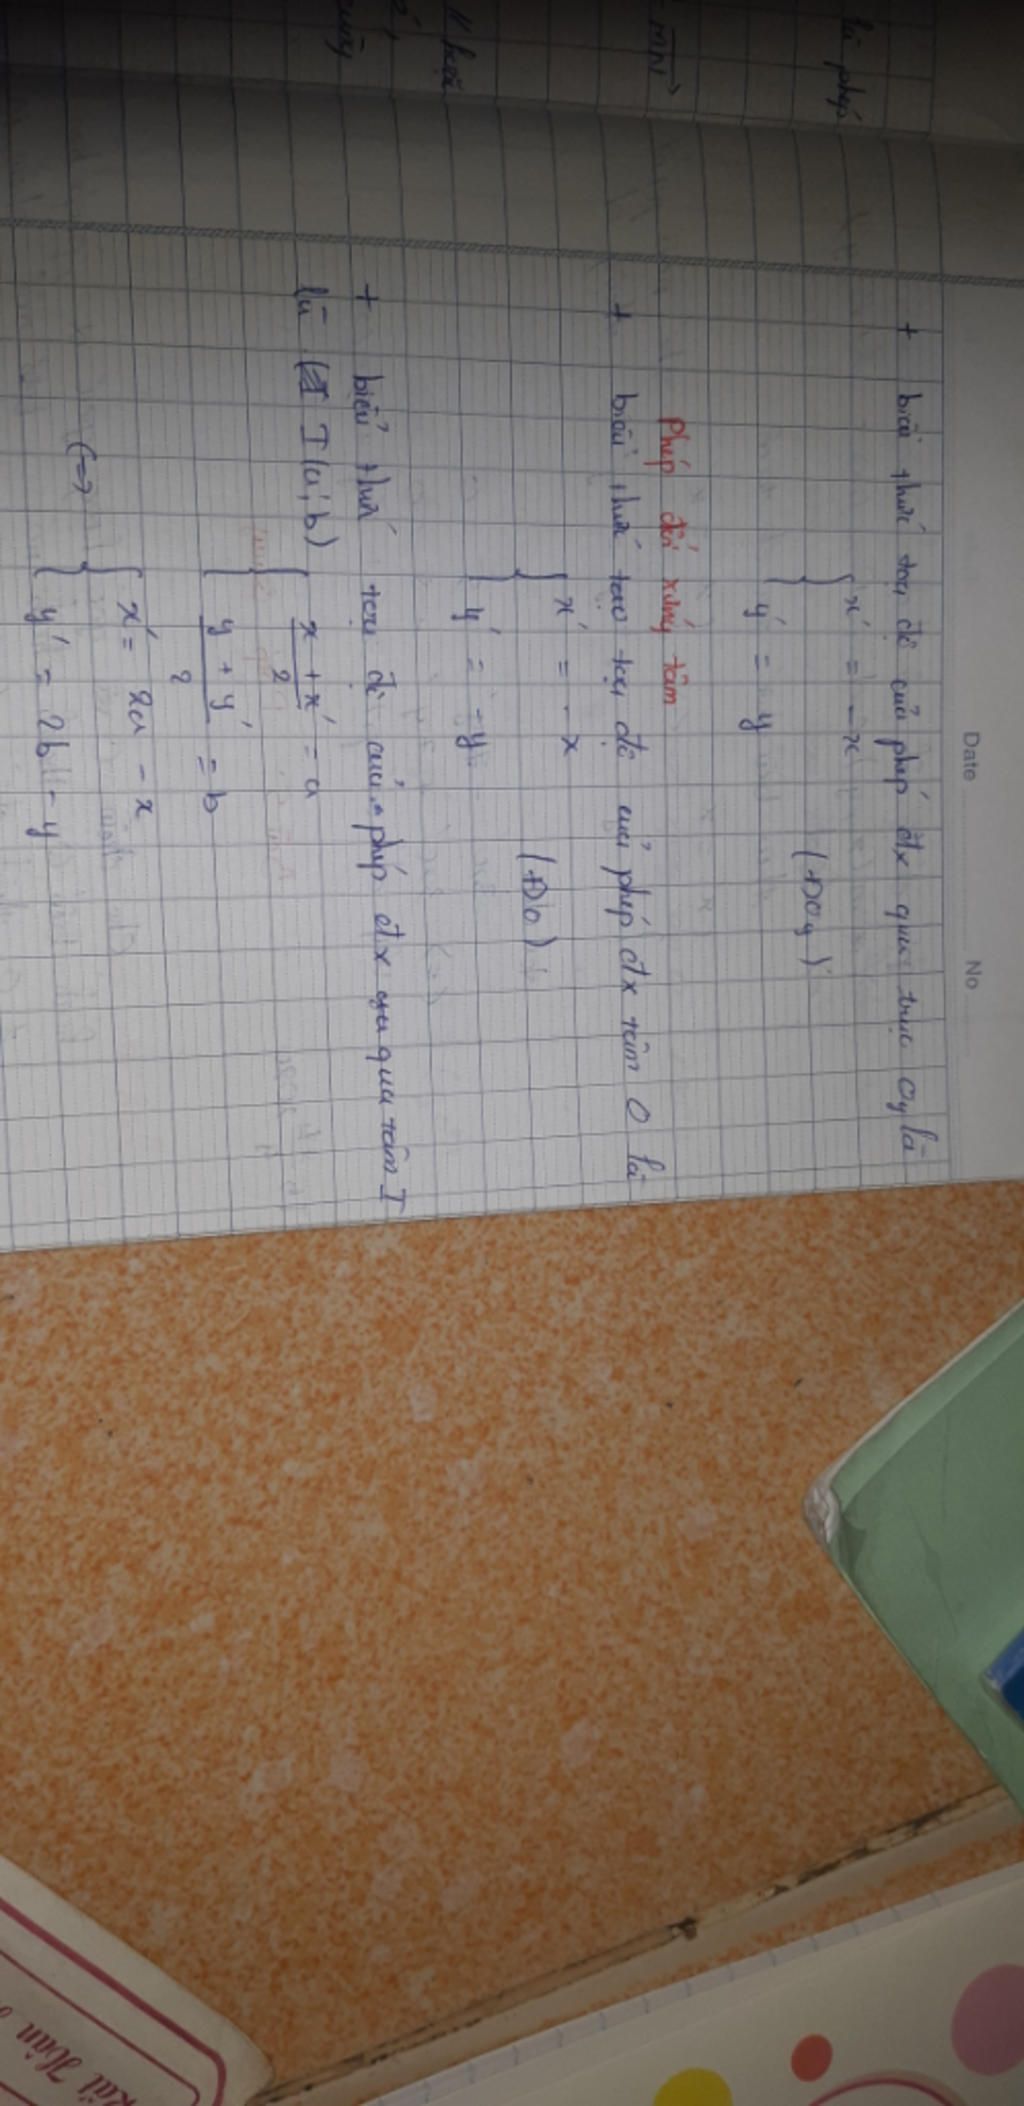 là phép
Date
No
+ biểu thức toạ độ của phép đx qua trục Oy là
{ x' = -x
y' = y
(ĐOy)
Phép đối xứng tâm
+ biểu thức toạ độ của phép đx tâm O là
{ x' = -x
y' = -y
(ĐO)
+ biểu thức toạ độ của phép đx qua tâm I
là I(a; b)
{ x + x' / 2 = a
y + y' / 2 = b
<=> { x' = 2a - x
{ y' = 2b - y